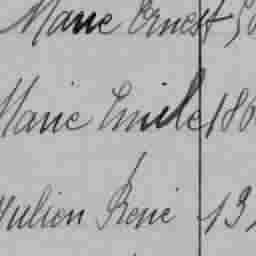 Marie Ernest
Marie Emile 186
Julien René 13